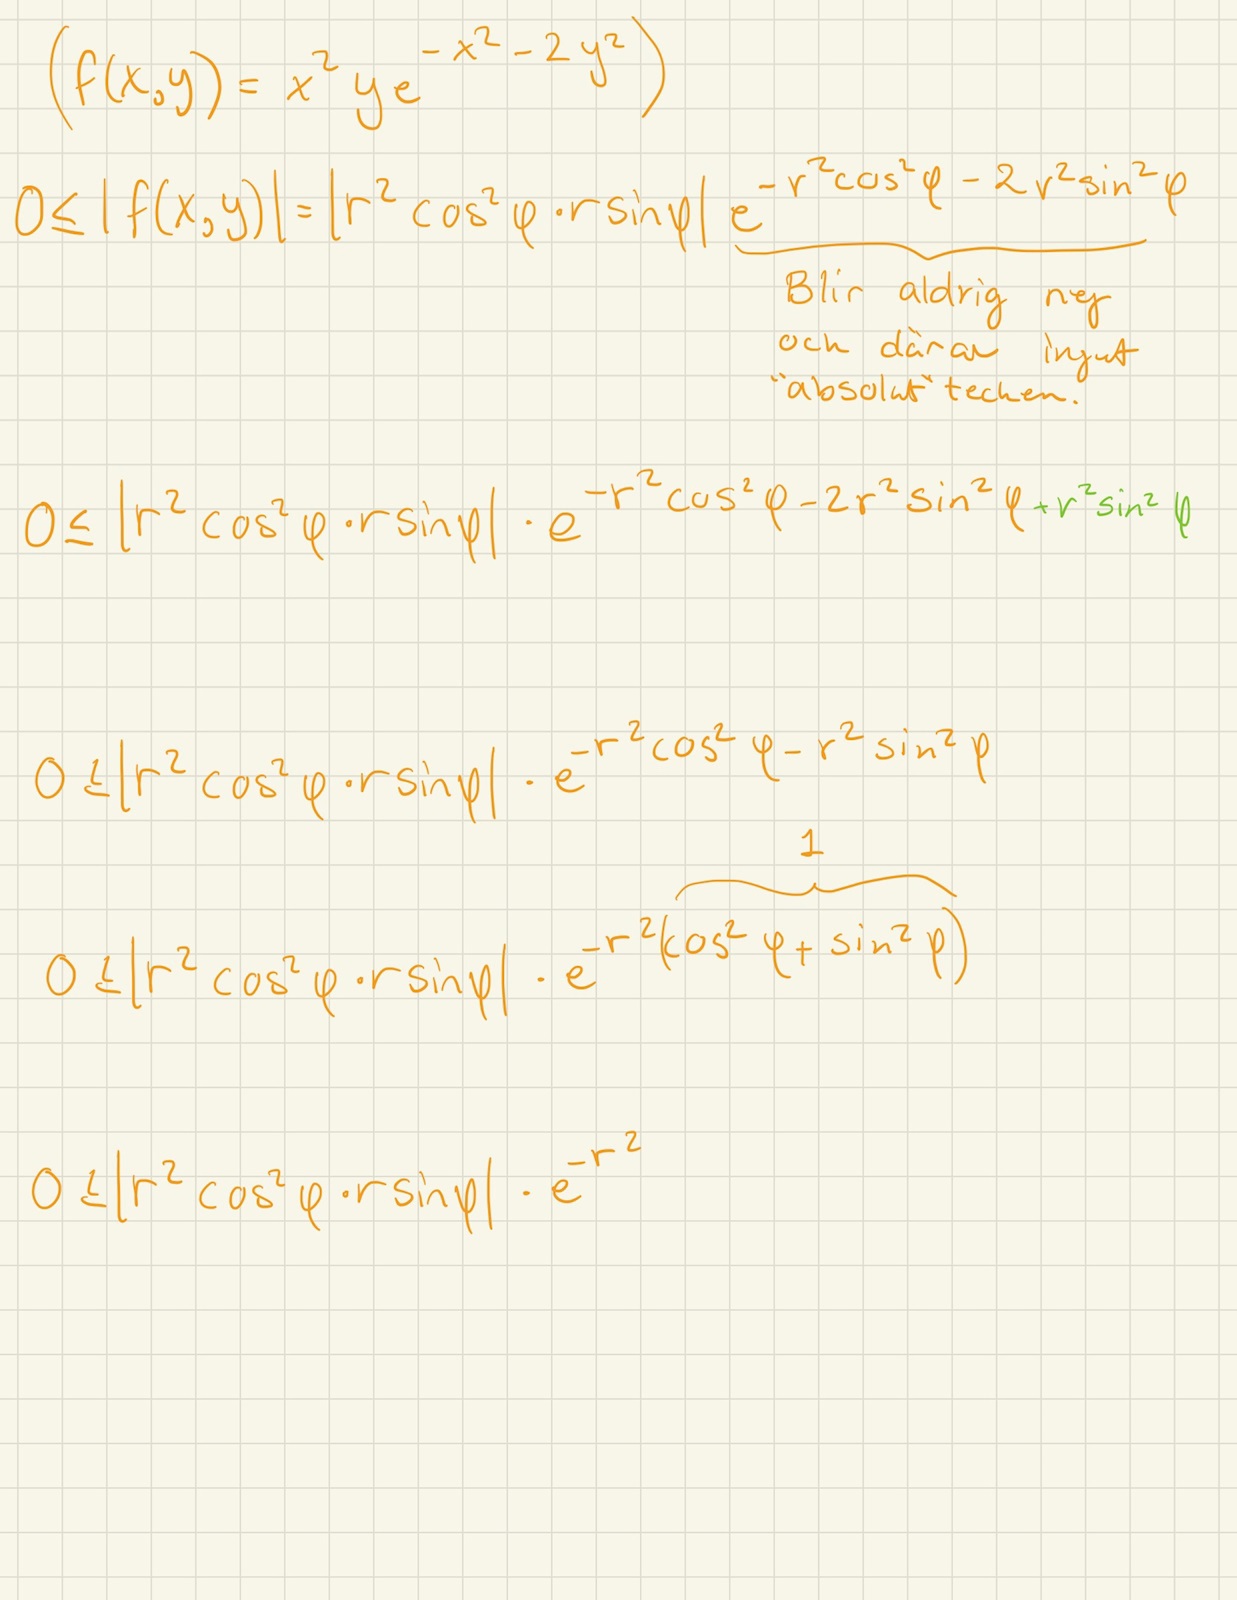 (f(x,y) = x² y e^{-x² - 2y²})
0 ≤ |f(x,y)| = |r² cos² φ · r sin φ| e^{-r² cos² φ - 2r² sin² φ}
Blir aldrig neg
och därav inget
"absolut" tecken.
0 ≤ |r² cos² φ · r sin φ| · e^{-r² cos² φ - 2r² sin² φ + r² sin² φ}
0 ≤ |r² cos² φ · r sin φ| · e^{-r² cos² φ - r² sin² φ}
1
0 ≤ |r² cos² φ · r sin φ| · e^{-r² (cos² φ + sin² φ)}
0 ≤ |r² cos² φ · r sin φ| · e^{-r²}